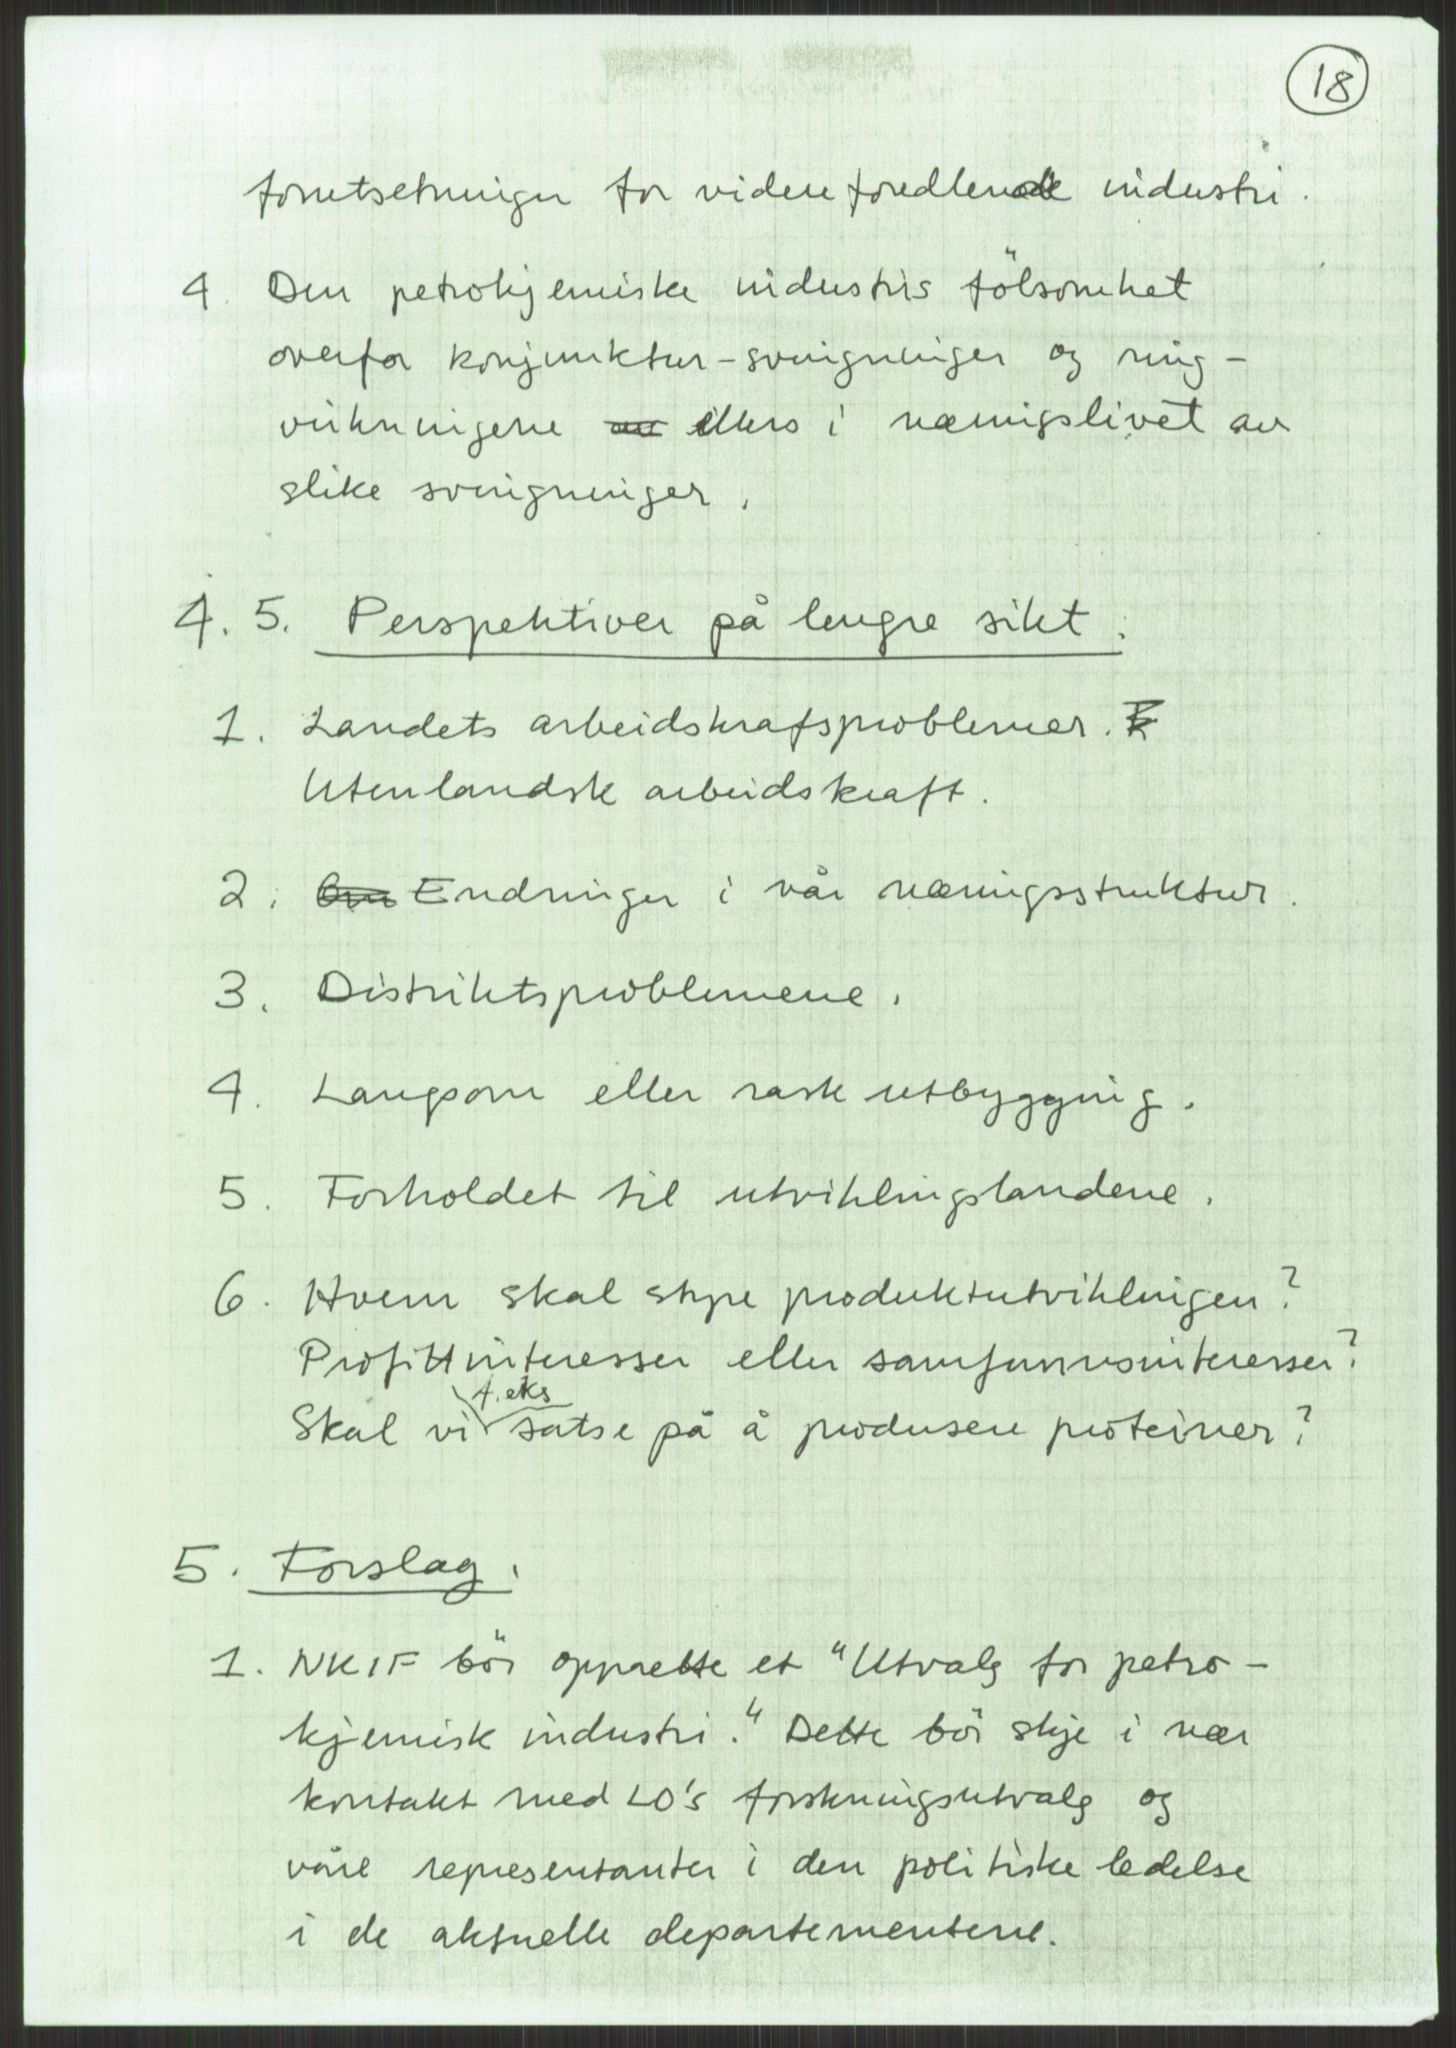 18
forutsetninger for videreforedlende industri.
4. Den petrokjemiske industris fölsomhet
overfor konjunktur-svingninger og ring-
virkningene ellers i næringslivet av
slike svingninger.
4.5. Perspektiver på lengre sikt.
1. Landets arbeidskrafsproblemer.
Utenlandsk arbeidskraft.
2. Endringer i vår næringsstruktur.
3. Distriktsproblemene.
4. Langsom eller rask utbygging.
5. Forholdet til utviklingslandene.
6. Hvem skal styre produktutviklingen?
Profittinteresser eller samfunnsinteresser?
Skal vi f.eks satse på å produsere proteiner?
5. Forslag.
1. NKIF bör opprette et "Utvalg for petro-
kjemisk industri." Dette bör skje i nær
kontakt med LO's forskningsutvalg og
våre representanter i den politiske ledelse
i de aktuelle departementene.